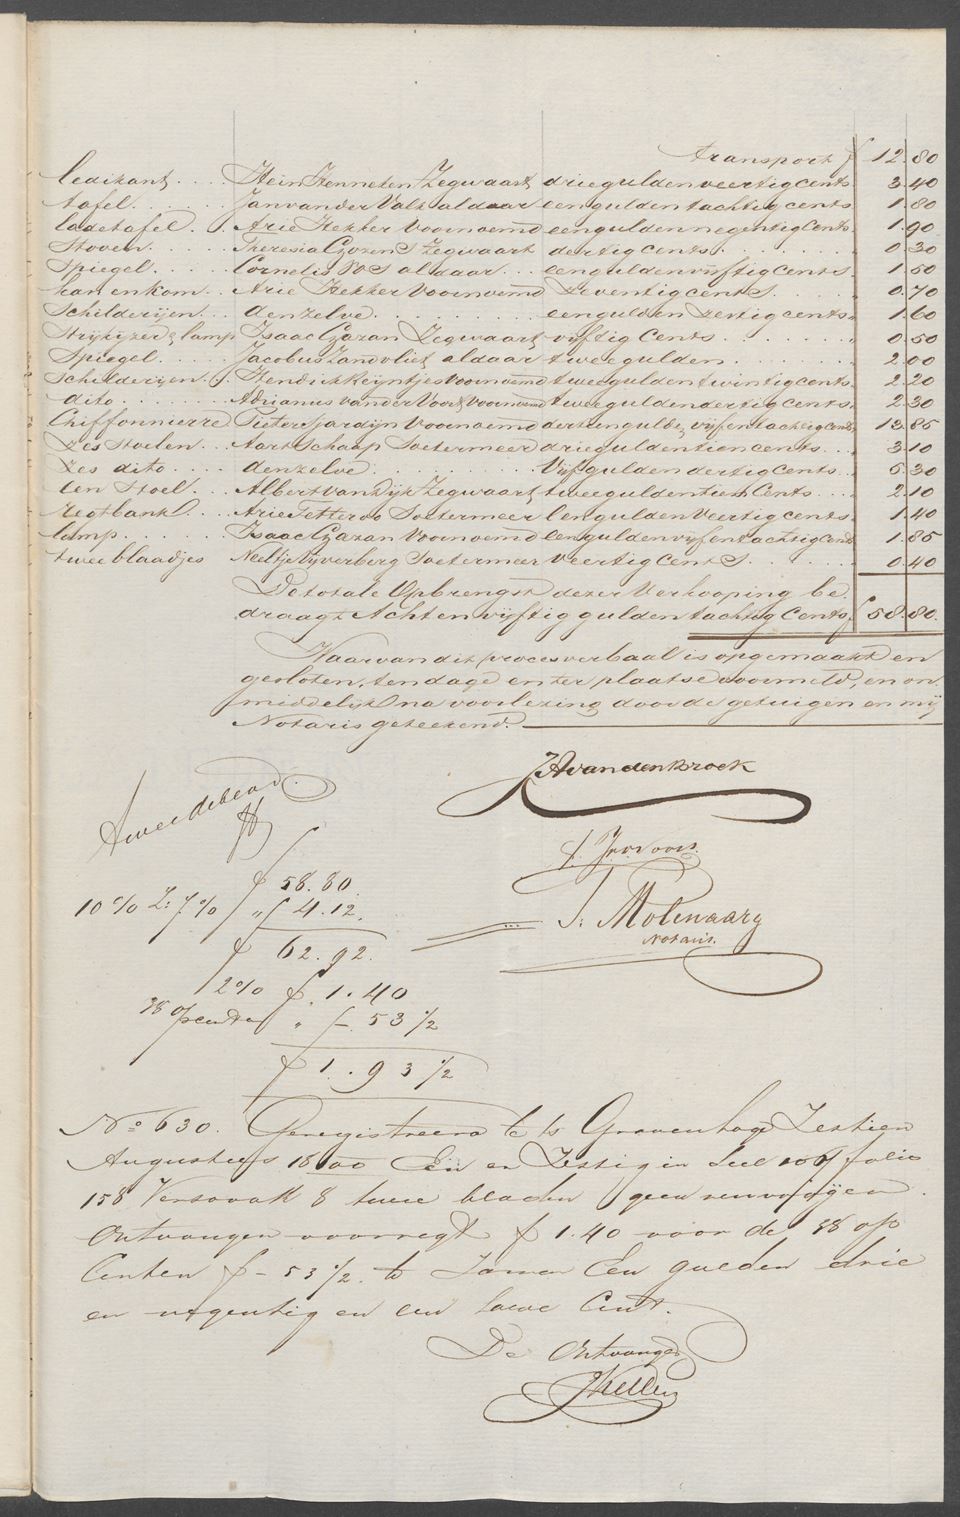 Transport f 12.80
ledikant .... Hein Henneken Zegwaart drie gulden veertig cents 3.40
tafel ..... Jan van der Valk aldaar een gulden tachtig cents 1.80
ladetafel .. Arie Hekker Voornoemd een gulden negentig cents 1.90
Stoven .... Theresia Gozan S Zegwaart dertig cents 0.30
Spiegel .... Cornelis Vos aldaar ... een gulden vijftig cents 1.50
kan en kom .. Arie Hekker Voornoemd zeventig cents 0.70
Schilderijen ... denzelve ........ een gulden zestig cents 1.60
Strijkijzer & lamp Isaac Gozan Zegwaart vijftig Cents 0.50
Spiegel ..... Jacobus Zandvliet aldaar twee gulden 2.00
Schilderijen .. Hendrik Keijntjes Voornoemd twee gulden twintig cents 2.20
dito ...... Adrianus van der Voort voornoemd twee gulden dertig cents 2.30
Chiffonnierre Pieter Jardijn Voornoemd dertien guld. vijf en tachtig cents 13.85
Zes Stoelen .. Aart Schaap Soetermeer drie gulden tien cents 3.10
Zes dito .... denzelve ....... Vijf gulden dertig cents 5.30
Een Stoel ... Albert van Dijk Zegwaart twee gulden tien Cents 2.10
Regtbank ... Arie Tetteroo Soetermeer Een gulden Veertig cents 1.40
lamp ..... Isaac Gozan Voornoemd Een gulden vijf en tachtig cents 1.85
twee blaadjes Neeltje Nijverberg Soetermeer Veertig Cents 0.40
De totale Opbrengst dezer Verkooping be
draagt Acht en vijftig gulden tachtig Cents f 58.80
Waarvan dit procesverbaal is opgemaakt en
gesloten, ten dage en ter plaatse voormeld, en on
middelijk na voorlezing door de getuigen en mij
Notaris geteekend.
JA van den Broek
Tweede blad.
J. Molenaar
Notaris.
f 58.80
10% Z: 7% " 4.12
f 62.92
2% f 1.40
38 opcenten " f - 53 1/2
f 1.93 1/2
No 630. Geregistreerd te 's Gravenhage Zestien
Augustus 18 00 Een en Zestig in deel folio
158 Verso vak 8 twee bladen geen renvooijen.
Ontvangen voor regt f 1.40 voor de 38 op
Centen f - 53 1/2. te Zamen Een gulden drie
en negentig en een halve Cent.
De Ontvanger
JKeller